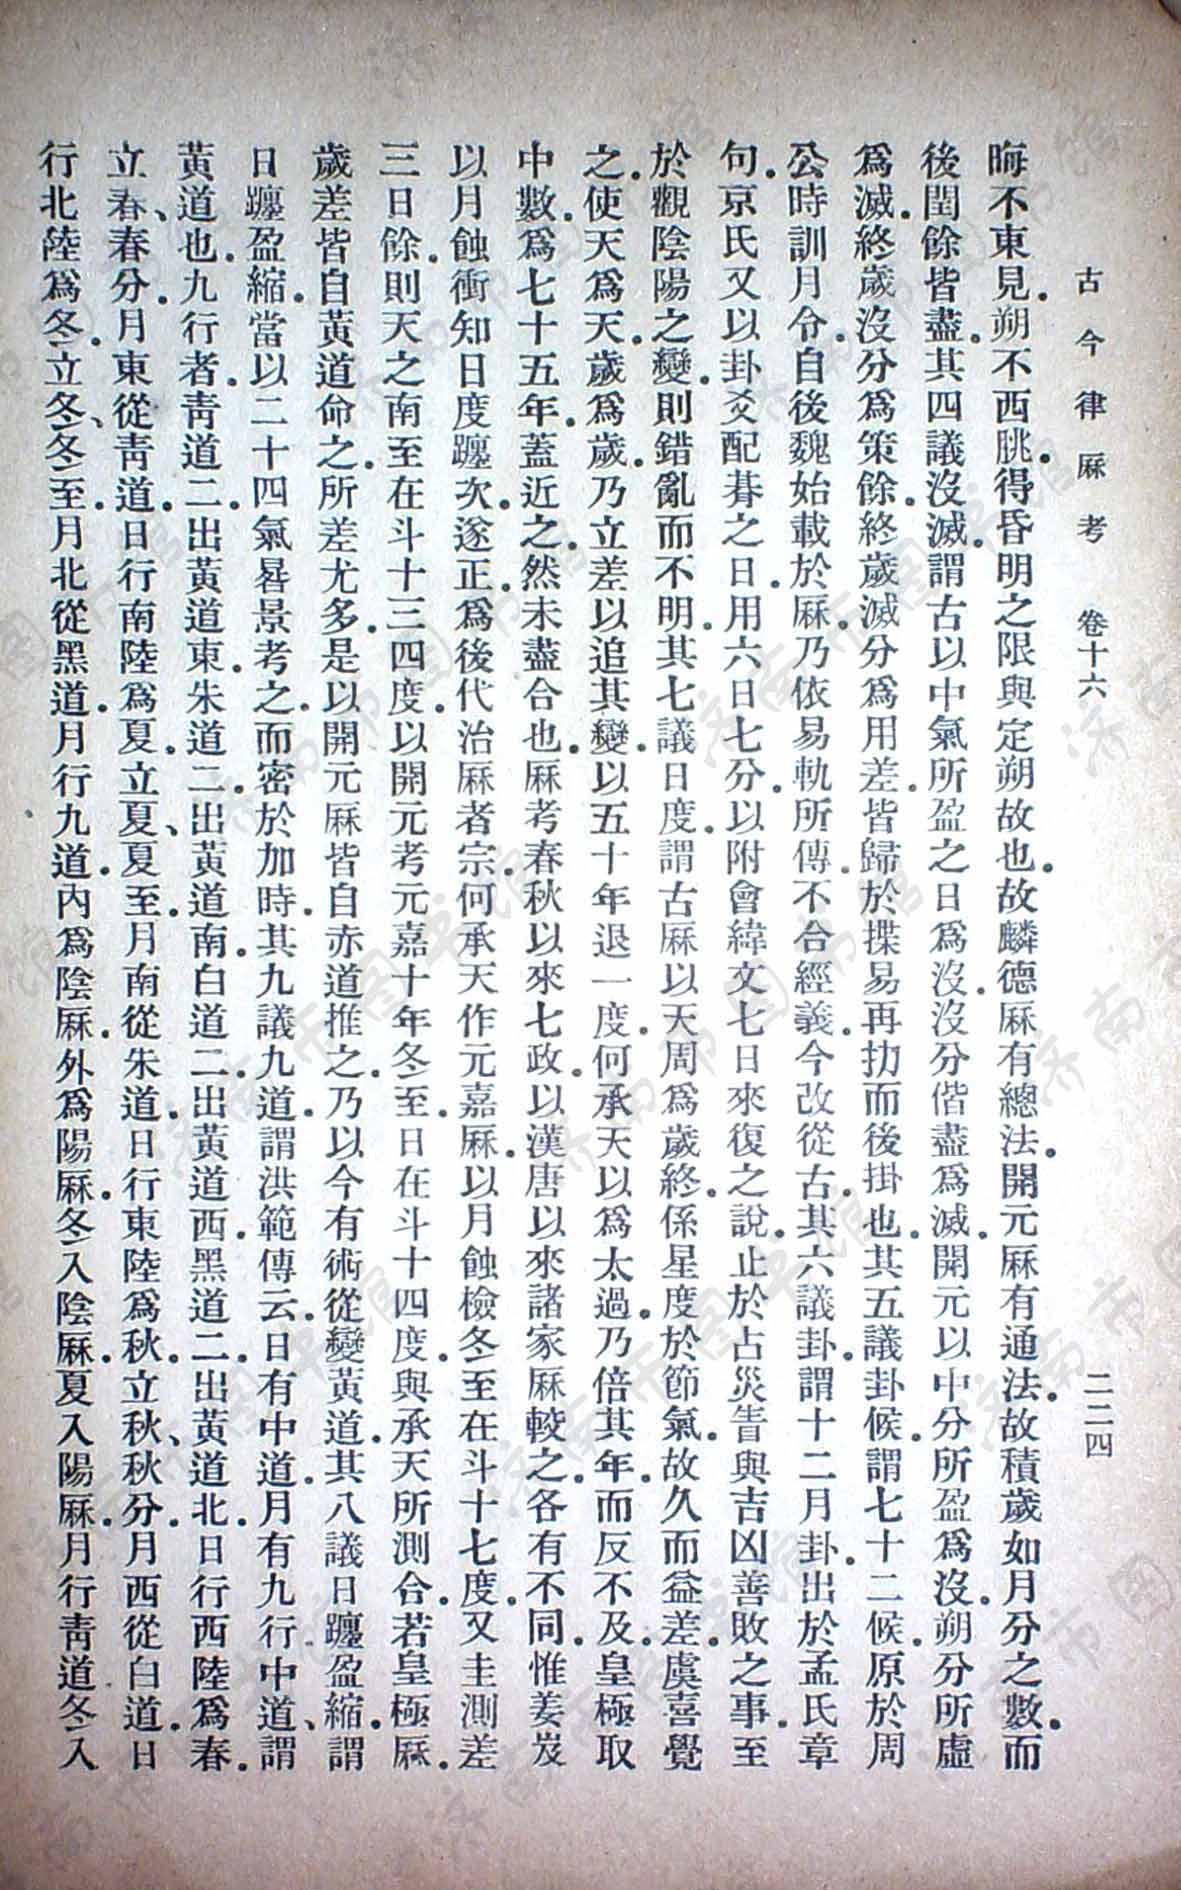 古今律厤考 卷十六 二二四
晦不東見。朔不西朓。得昏明之限與定朔故也。故麟德厤有總法。開元厤有通法。故積歲如月分之數。而
後閏餘皆盡。其四議沒滅。謂古以中氣所盈之日爲沒。沒分偕盡爲滅。開元以中分所盈爲沒。朔分所虛
爲滅。終歲沒分爲策餘。終歲滅分爲用差。皆歸於揲易再扐而後掛也。其五議卦候。謂七十二候。原於周
公時訓月令。自後魏始載於厤。乃依易軌所傳。不合經義。今改從古。其六議卦。謂十二月卦。出於孟氏章
句。京氏又以卦爻配朞之日。用六日七分。以附會緯文七日來復之說。止於占災眚與吉凶善敗之事。至
於觀陰陽之變。則錯亂而不明。其七議日度。謂古厤以天周爲歲終。係星度於節氣。故久而益差。虞喜覺
之。使天爲天。歲爲歲。乃立差以追其變。以五十年退一度。何承天以爲太過。乃倍其年。而反不及。皇極取
中數。爲七十五年。蓋近之。然未盡合也。厤考春秋以來七政。以漢唐以來諸家厤較之。各有不同。惟姜岌
以月蝕衝知日度躔次。遂正爲後代治厤者宗。何承天作元嘉厤。以月蝕檢冬至在斗十七度。又主測差
三日餘。則天之南至在斗十三四度。以開元考元嘉十年冬至。日在斗十四度。與承天所測合。若皇極厤。
歲差皆自黃道命之。所差尤多。是以開元厤皆自赤道推之。乃以今有術從變黃道。其八議日躔盈縮。謂
日躔盈縮。當以二十四氣晷景考之。而密於加時。其九議九道。謂洪範傳云。日有中道。月有九行。中道、謂
黃道也。九行者。青道二。出黃道東。朱道二。出黃道南。白道二。出黃道西。黑道二。出黃道北。日行西陸爲春。
立春、春分。月東從青道。日行南陸爲夏。立夏、夏至。月南從朱道。日行東陸爲秋。立秋、秋分。月西從白道。日
行北陸爲冬。立冬、冬至。月北從黑道。月行九道。內爲陰厤。外爲陽厤。冬入陰厤。夏入陽厤。月行青道。冬入